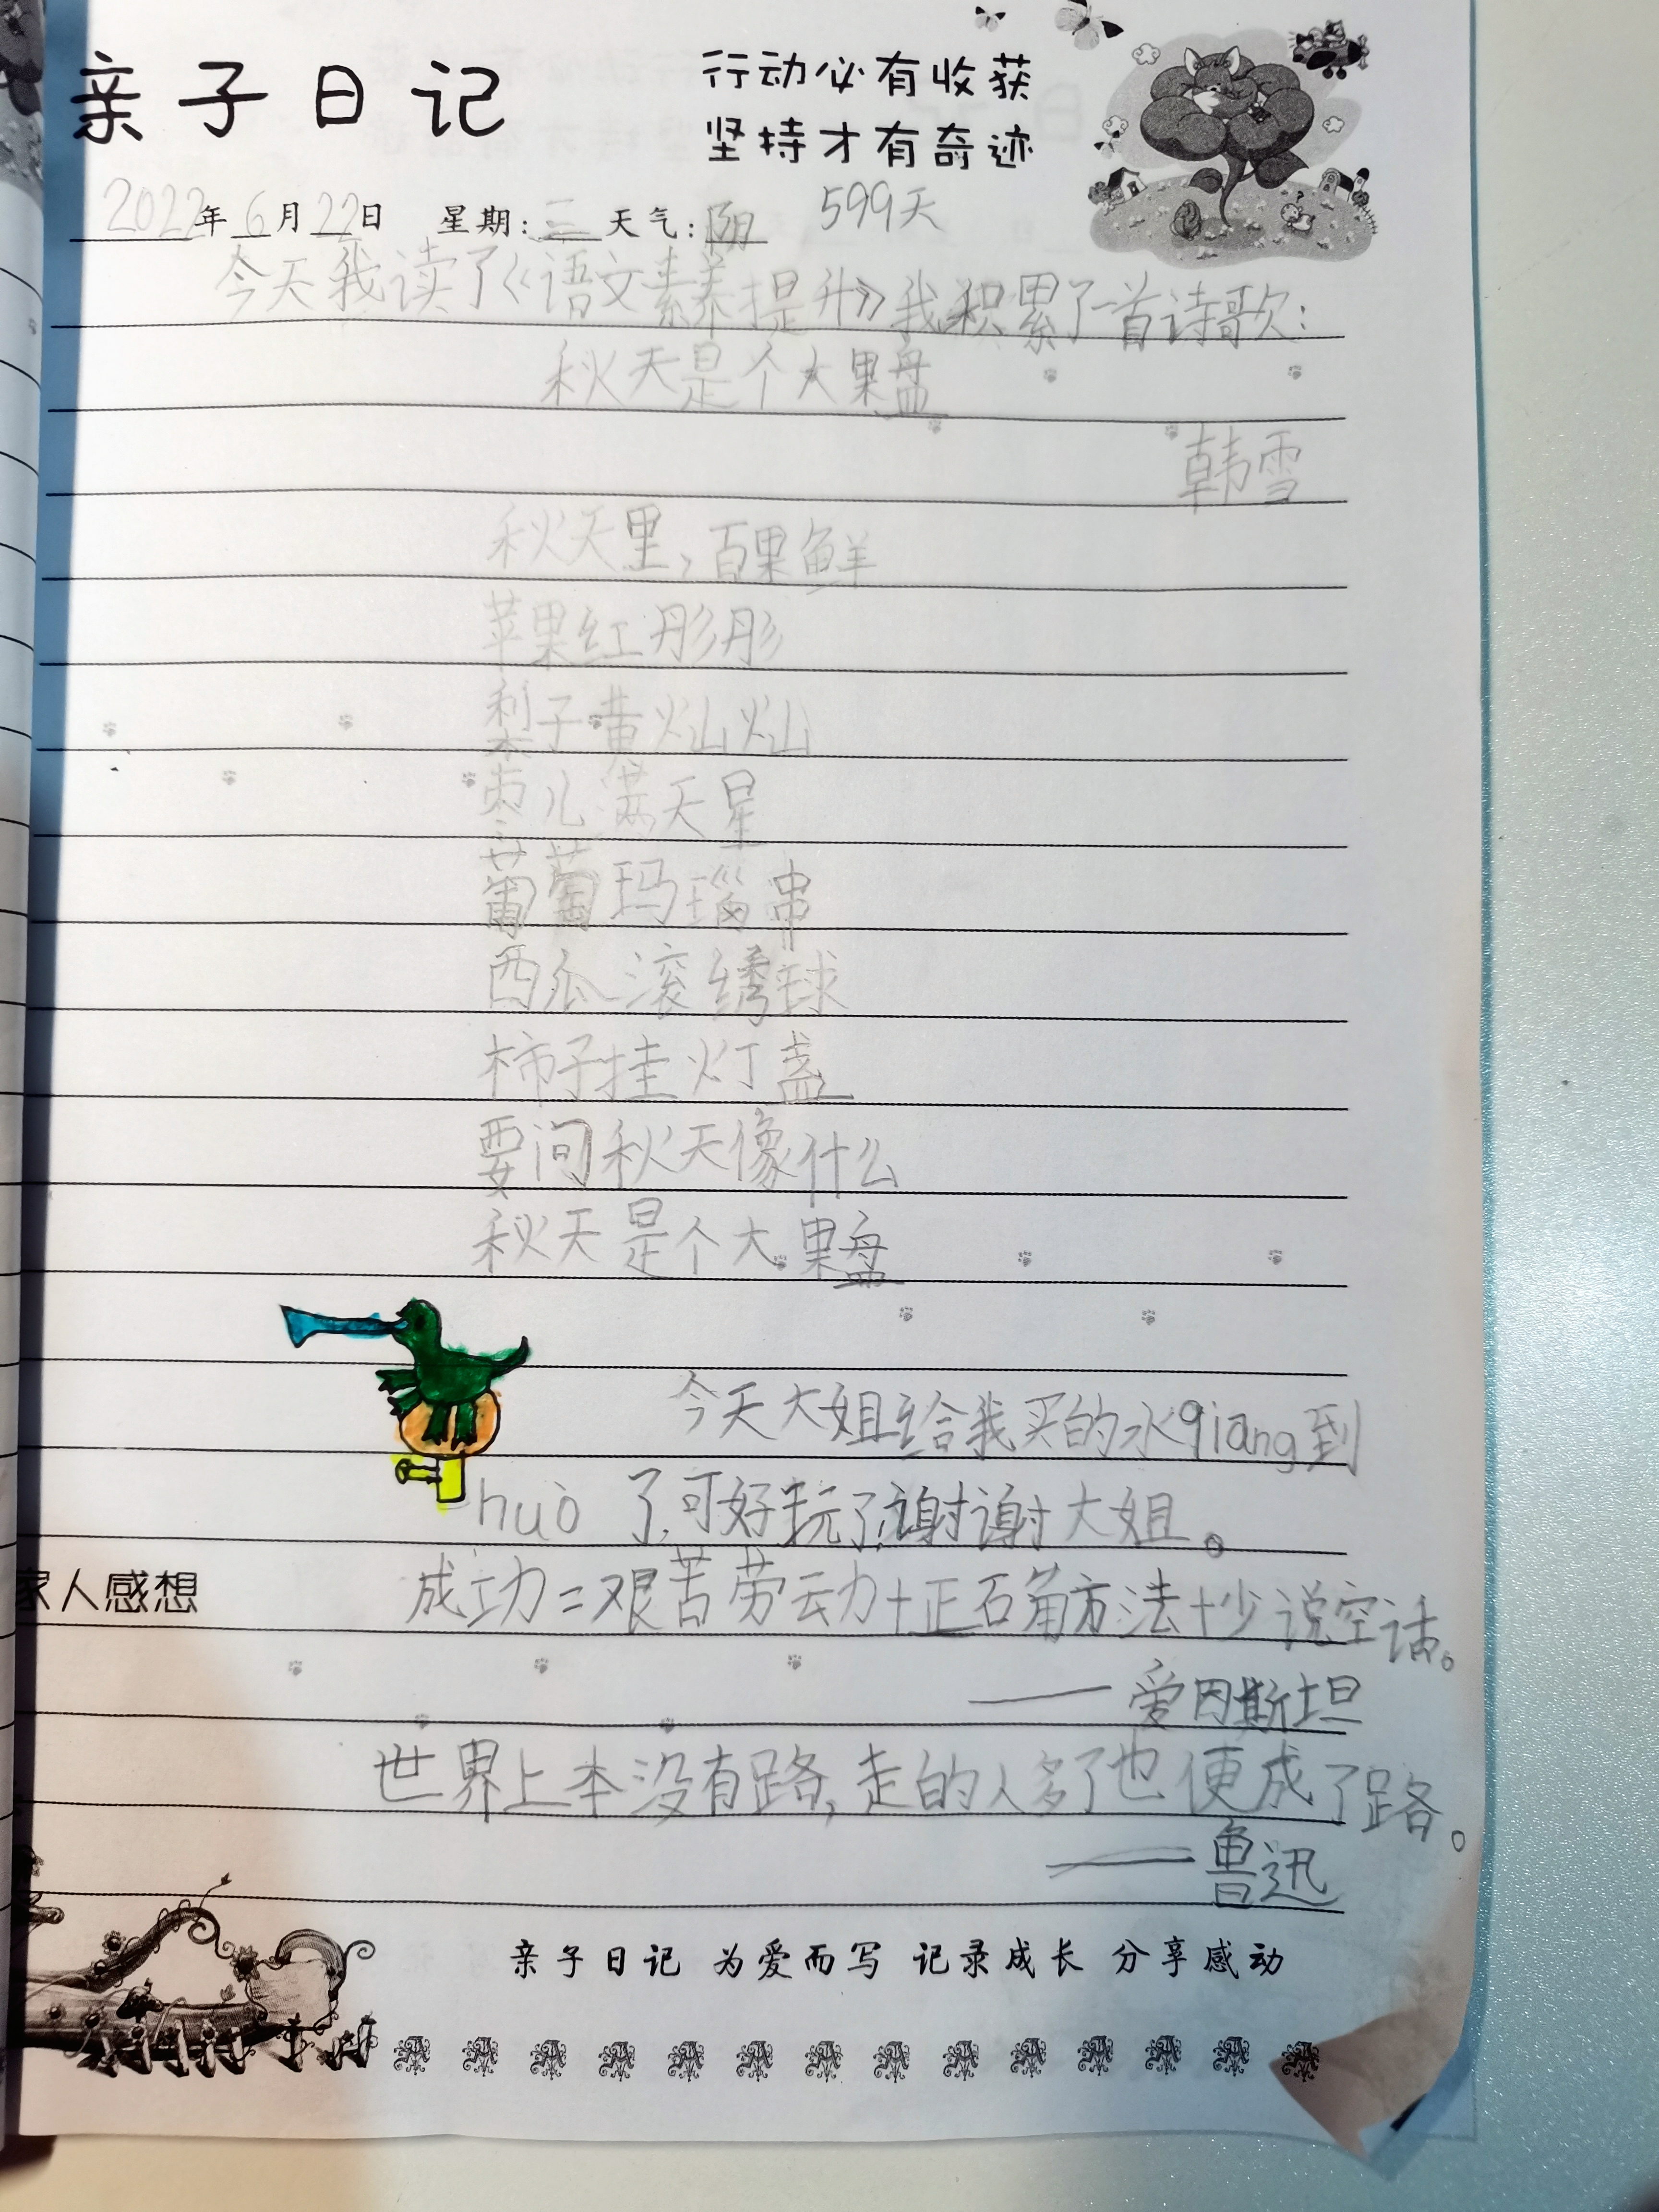 亲子日记
行动必有收获
坚持才有奇迹
2022年6月22日 星期:三 天气:阴 599天
今天我读了《语文素养提升》我积累了一首诗歌:
秋天是个大果盘
韩雪
秋天里,百果鲜
苹果红彤彤
梨子黄灿灿
枣儿满天星
葡萄玛瑙串
西瓜滚绣球
柿子挂灯盏
要问秋天像什么
秋天是个大果盘
今天大姐给我买的水qiang到
huò了,可好玩了,谢谢大姐。
家人感想 成功=艰苦劳动+正确方法+少说空话。
——爱因斯坦
世界上本没有路,走的人多了也便成了路。
——鲁迅
亲子日记 为爱而写 记录成长 分享感动